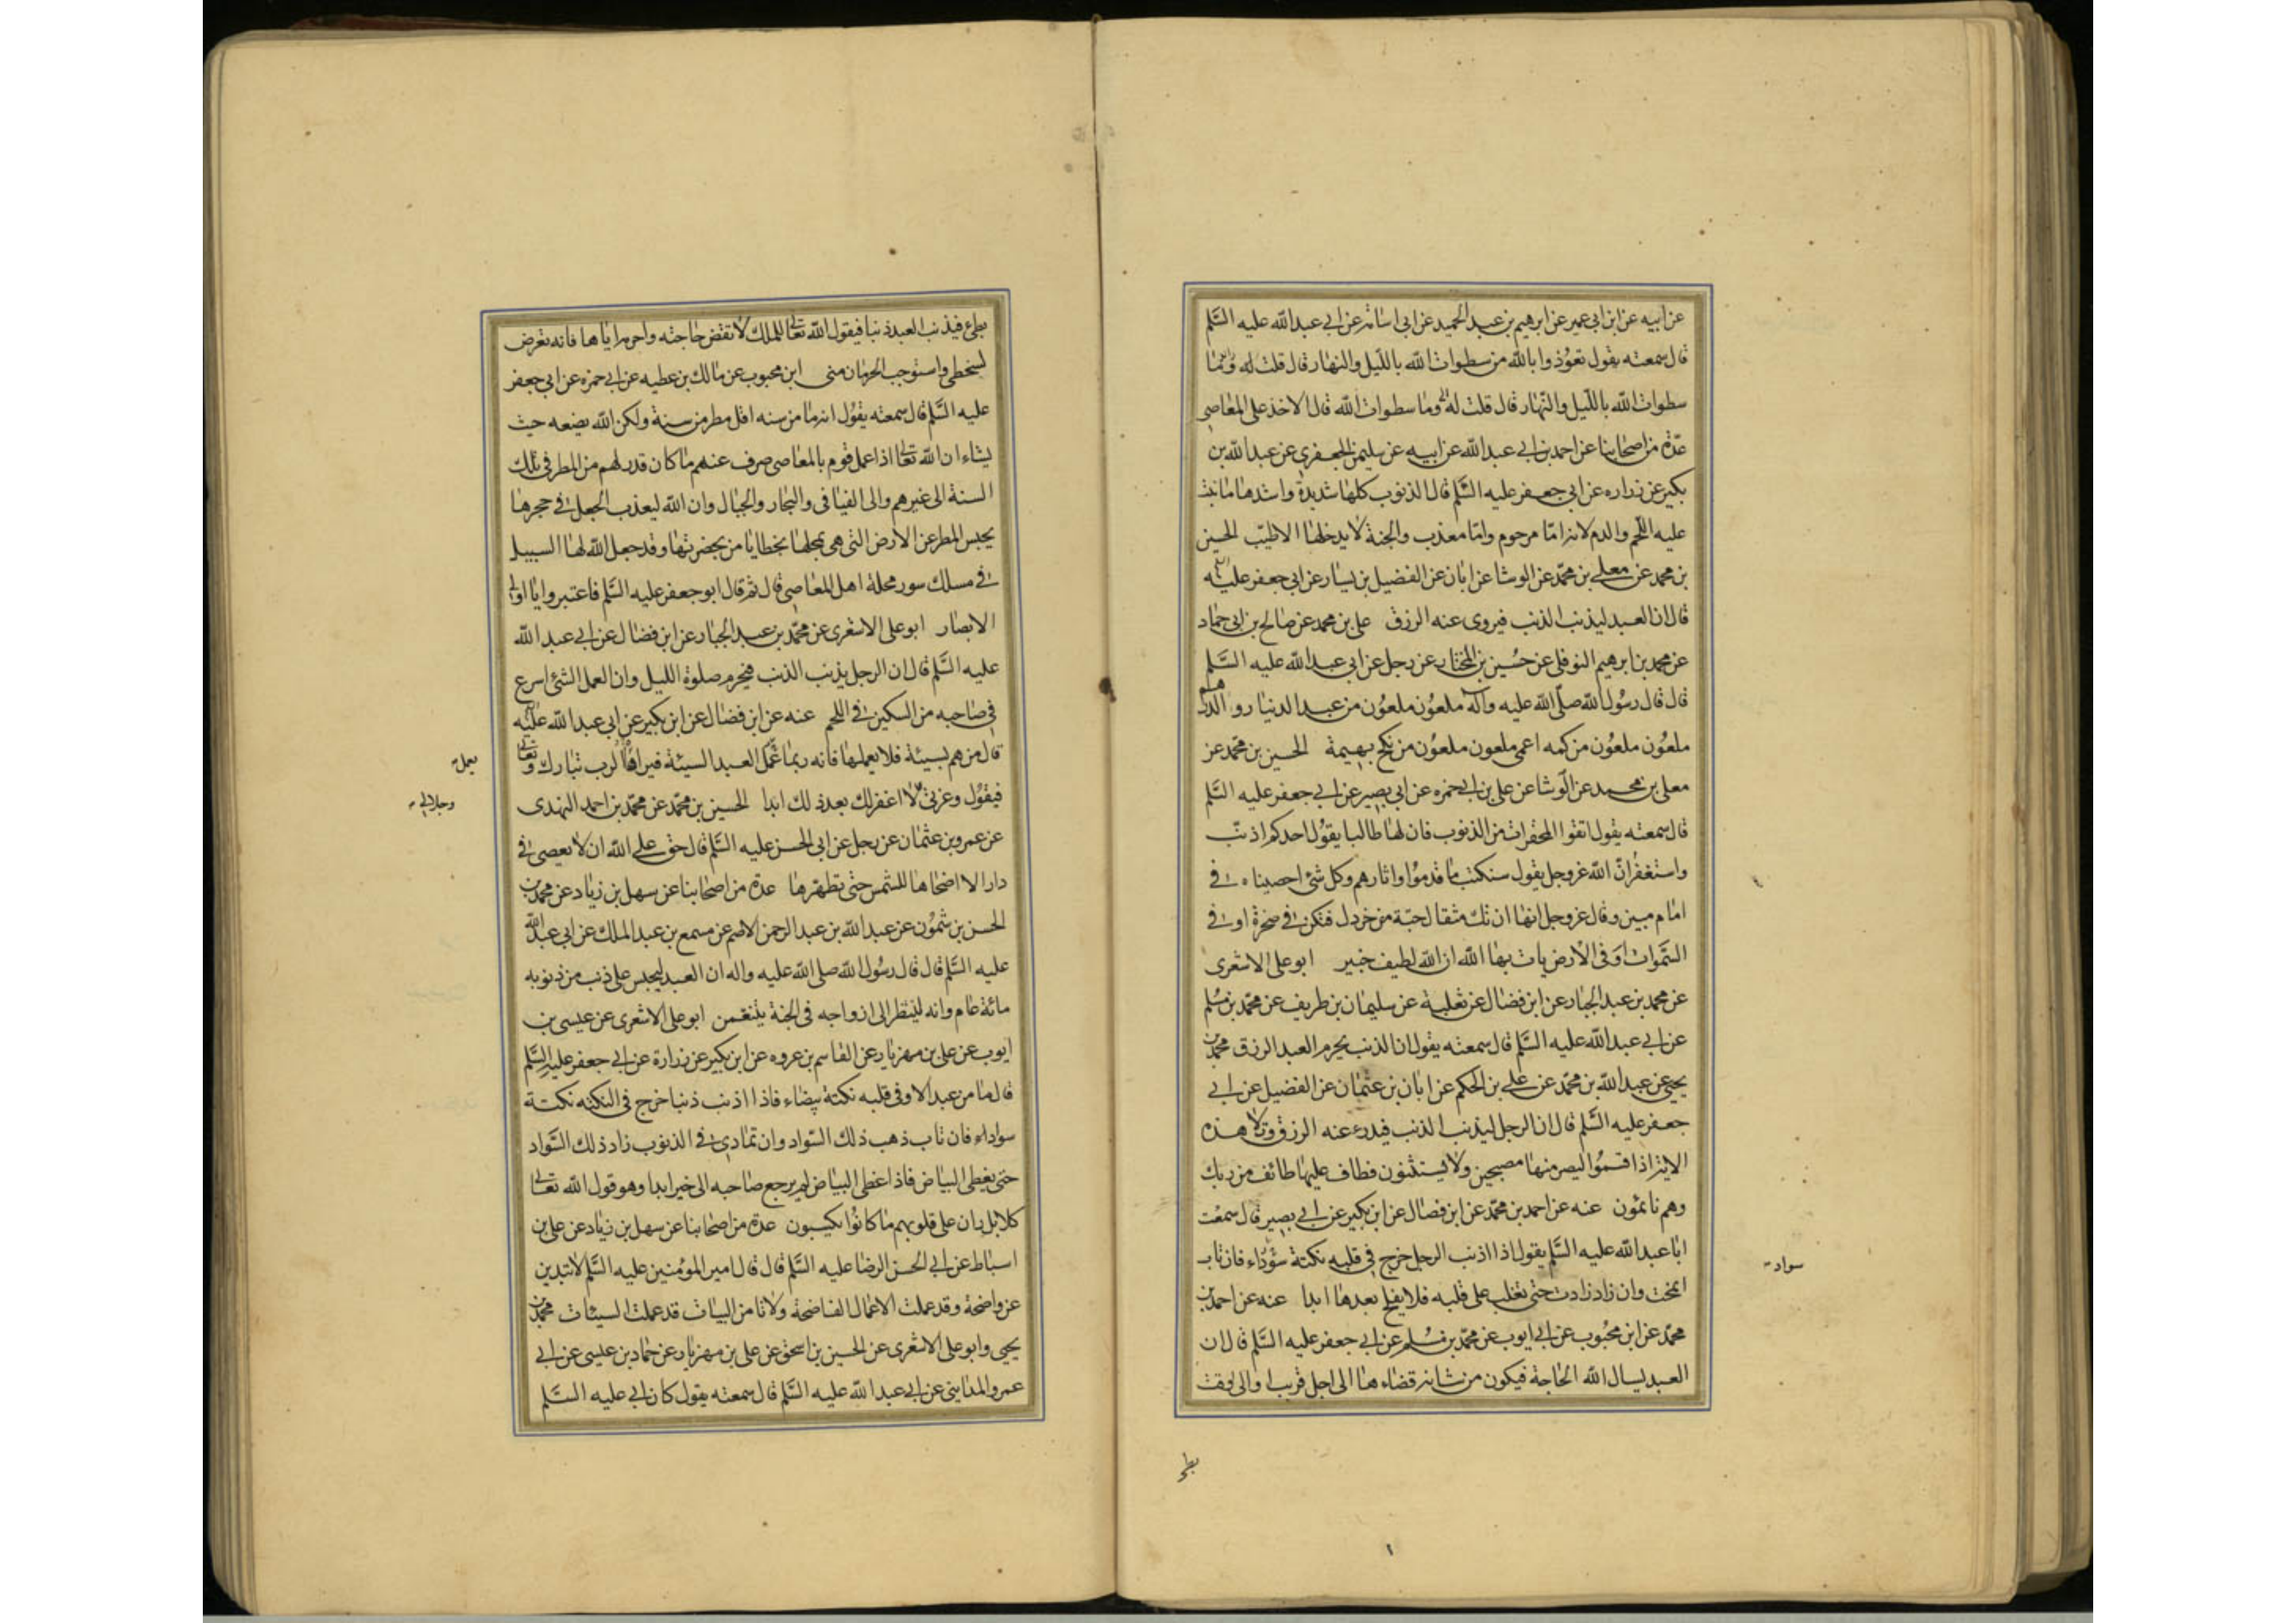 عن ابيه عن ابن ابي عمير عن ابرهيم بن عبد الحميد عن ابى اسامة عن ابي عبد الله عليه السّلم
قال سمعته يقول تعوّذوا بالله من سطوات الله بالليل والنهار قال قلت له وما
سطوات الله بالليل والنهار قال قلت له وما سطوات الله قال الاخذ على المعاصي
عدّة من اصحابنا عن احمد بن ابي عبد الله عن ابيه عن سليمن الجعفري عن عبد الله بن
بكير عن زراره عن ابى جعفر عليه السّلم قال الذنوب كلها شديدة واشدها ما نبت
عليه اللّحم والدم لانه امّا مرحوم وامّا معذب والجنة لا يدخلها الا طيّب الحسين
بن محمد عن معلى بن محمّد عن الوشا عن ابان عن الفضيل بن يسار عن ابى جعفر عليه السلم
قال ان العبد ليذنب الذنب فيروى عنه الرزق على بن محمد عن صالح بن ابى حماد
عن محمد بن ابرهيم النوفلى عن حسين بن المختار عن رجل عن ابى عبد الله عليه السّلم
قال قال رسول الله صلّى الله عليه واله ملعون ملعون من عبد الدنيا رو الدرهم
ملعون ملعون من كمه اعمى ملعون ملعون من نكح بهيمة الحسين بن محمّد عن
معلى بن محمد عن الوشا عن على بن ابى حمزه عن ابى بصير عن ابي جعفر عليه السّلم
قال سمعته يقول اتقوا المحقرات من الذنوب فان لها طالبا يقول احدكم اذنب
واستغفر انّ الله عز وجل يقول سنكتب ما قدموا واثارهم وكل شئ احصيناه في
امام مبين وقال عز وجل انها ان تك مثقال حبّة من خردل فتكن في صخرة او في
السّموات او فى الارض يات بها الله ان الله لطيف خبير ابو على الاشعرى
عن محمد بن عبد الجبار عن ابن فضال عن ثعلبة عن سليمان بن طريف عن محمّد بن مسلم
عن ابي عبد الله عليه السّلم قال سمعته يقول ان الذنب يحرم العبد الرزق محمد بن
يحيى عن عبد الله بن محمّد عن على بن الحكم عن ابان بن عثمان عن الفضيل عن ابي
جعفر عليه السّلم قال ان الرجل ليذنب الذنب فيدرء عنه الرزق وتلا هذه
الاية اذ اقسموا ليصرمنها مصبحين ولا يستثنون فطاف عليها طائف من ربك
وهم نائمون عنه عن احمد بن محمّد عن ابن فضال عن ابن بكير عن ابي بصير قال سمعت
ابا عبد الله عليه السّلم يقول اذا اذنب الرجل خرج فى قلبه نكتة سوداء فان تاب
انمحت وان زاد زادت حتى تغلب على قلبه فلا يفلح بعدها ابدا عنه عن احمد بن
محمّد عن ابن محبوب عن ابي ايوب عن محمّد بن مسلم عن ابي جعفر عليه السّلم قال ان
العبد ليسال الله الحاجة فيكون من شانه قضاءها الى اجل قريب او الى وقت
سواد
بطى
بطئ فيذنب العبد ذنبا فيقول الله تعالى للملك لا تقض حاجته واحرمه اياها فانه تعرض
لسخطى واستوجب الحرمان منى ابن محبوب عن مالك بن عطيه عن ابي حمزه عن ابى جعفر
عليه السّلم قال سمعته يقول انه ما من سنه اقل مطر من سنة ولكن الله يضعه حيث
يشاء ان الله تعالى اذا عمل قوم بالمعاصى صرف عنهم ما كان قدر لهم من المطر فى تلك
السنة الى غيرهم والى الفيافى والبحار والجبال وان الله ليعذب الجعل في حجرها
يحبس المطر عن الارض التى هى بمحلها بخطايا من بحضرتها وقد جعل الله لها السبيل
في مسلك سور محلة اهل المعاصى قال ثم قال ابو جعفر عليه السّلم فاعتبروا يا اولى
الابصار ابو على الاشعرى عن محمّد بن عبد الجبار عن ابن فضال عن ابى عبد الله
عليه السّلم قال ان الرجل يذنب الذنب فيحرم صلوة الليل وان العمل الشئ اسرع
فى صاحبه من السكين في اللحم عنه عن ابن فضال عن ابن بكير عن ابى عبد الله عليه
قال من هم بسيئة فلا يعملها فانه ربما عمل العبد السيئة فيراه الرب تبارك وتعالى
فيقول وعزتى لا اغفر لك بعد ذلك ابدا الحسين بن محمّد عن محمّد بن احمد النهدى
عن عمرو بن عثمان عن رجل عن ابى الحسن عليه السّلم قال حق على الله ان لا يعصى في
دار الا اضحاها للشمس حتى تطهرها عدة من اصحابنا عن سهل بن زياد عن محمد بن
الحسن بن شمون عن عبد الله بن عبد الرحمن الاصم عن مسمع بن عبد الملك عن ابى عبد الله
عليه السّلم قال قال رسول الله صلى الله عليه واله ان العبد ليحبس على ذنب من ذنوبه
مائة عام وانه لينظر الى ازواجه فى الجنة يتنعمن ابو على الاشعرى عن عيسى بن
ايوب عن على بن مهزيار عن القاسم بن عروه عن ابن بكير عن زرارة عن ابي جعفر عليه السّلم
قال ما من عبد الا وفى قلبه نكتة بيضاء فاذا اذنب ذنبا خرج فى النكته نكتة
سوداء فان تاب ذهب ذلك السّواد وان تمادى في الذنوب زاد ذلك السّواد
حتى يغطى البياض فاذا غطى البياض لم يرجع صاحبه الى خير ابدا وهو قول الله تعالى
كلا بل ران على قلوبهم ما كانوا يكسبون عدة من اصحابنا عن سهل بن زياد عن على بن
اسباط عن ابى الحسن الرضا عليه السّلم قال قال امير المؤمنين عليه السّلم لا تبدين
عن واضحة وقد عملت الاعمال الفاضحة ولا تامن البيات قد عملت السيئات محمد بن
يحيى وابو على الاشعرى عن الحسين بن اسحق عن على بن مهزيار عن حماد بن عيسى عن ابي
عمرو المداينى عن ابي عبد الله عليه السّلم قال سمعته يقول كان ابي عليه السّلم
يعمل
وجلالى